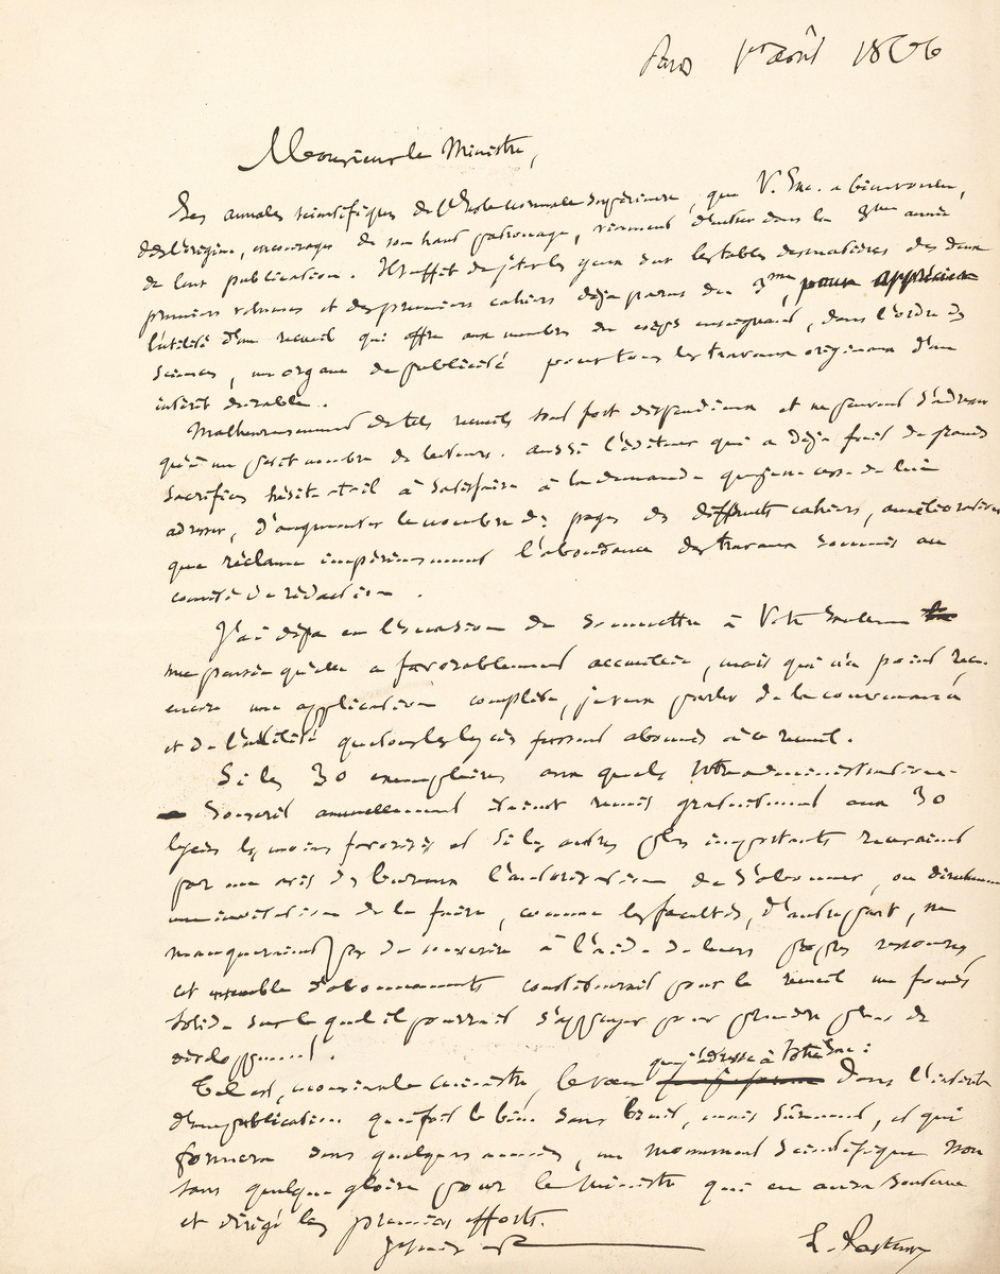 Paris 1er août 1866
Monsieur le Ministre,
Les annales scientifiques de l'Ecole normale supérieure, que V. Exc. a bien voulu,
dès l'origine, encourager de son haut patronage, viennent d'entrer dans la 3me année
de leur publication. Il suffit de jeter les yeux sur les tables des matières des deux
premiers volumes et des premiers cahiers déjà parus du 3me, pour apprécier
l'utilité d'un recueil qui offre aux membres du corps enseignant, dans l'ordre des
sciences, un organe de publicité pour tous les travaux originaux d'un
intérêt durable.
Malheureusement de tels recueils sont fort dispendieux et ne peuvent s'adresser
qu'à un petit nombre de lecteurs. Aussi l'éditeur qui a déjà fait de grands
sacrifices hésite-t-il à satisfaire à la demande que je ne cesse de lui
adresser, d'augmenter le nombre des pages des différents cahiers, amélioration
que réclame impérieusement l'abondance des travaux soumis au
comité de rédaction.
J'ai déjà eu l'occasion de soumettre à Votre Excellence
une pensée qu'elle a favorablement accueillie, mais qui n'a point reçu
encore une application complète, je veux parler de la convenance
et de l'utilité que tous les lycées fussent abonnés à ce recueil.
Si les 30 exemplaires auxquels Votre administration
souscrit annuellement étaient remis gratuitement aux 30
lycées les moins favorisés et si les autres plus importants recevaient
par un avis des bureaux l'autorisation de s'abonner, ou directement
une invitation de le faire, comme les facultés, d'autre part, ne
manqueraient pas de souscrire à l'aide de leurs propres ressources,
cet ensemble d'abonnements constituerait pour le recueil un fonds
solide sur lequel il pourrait s'appuyer pour prendre plus de
développement.
Tel est, monsieur le ministre, le vœu que j'adresse à Votre Exc: dans l'intérêt
d'une publication qui fait le bien sans bruit, mais sûrement, et qui
formera dans quelques années, un monument scientifique non
sans quelque gloire pour le Ministre qui en aura soutenu
et dirigé les premiers efforts.
Je suis
L. Pasteur